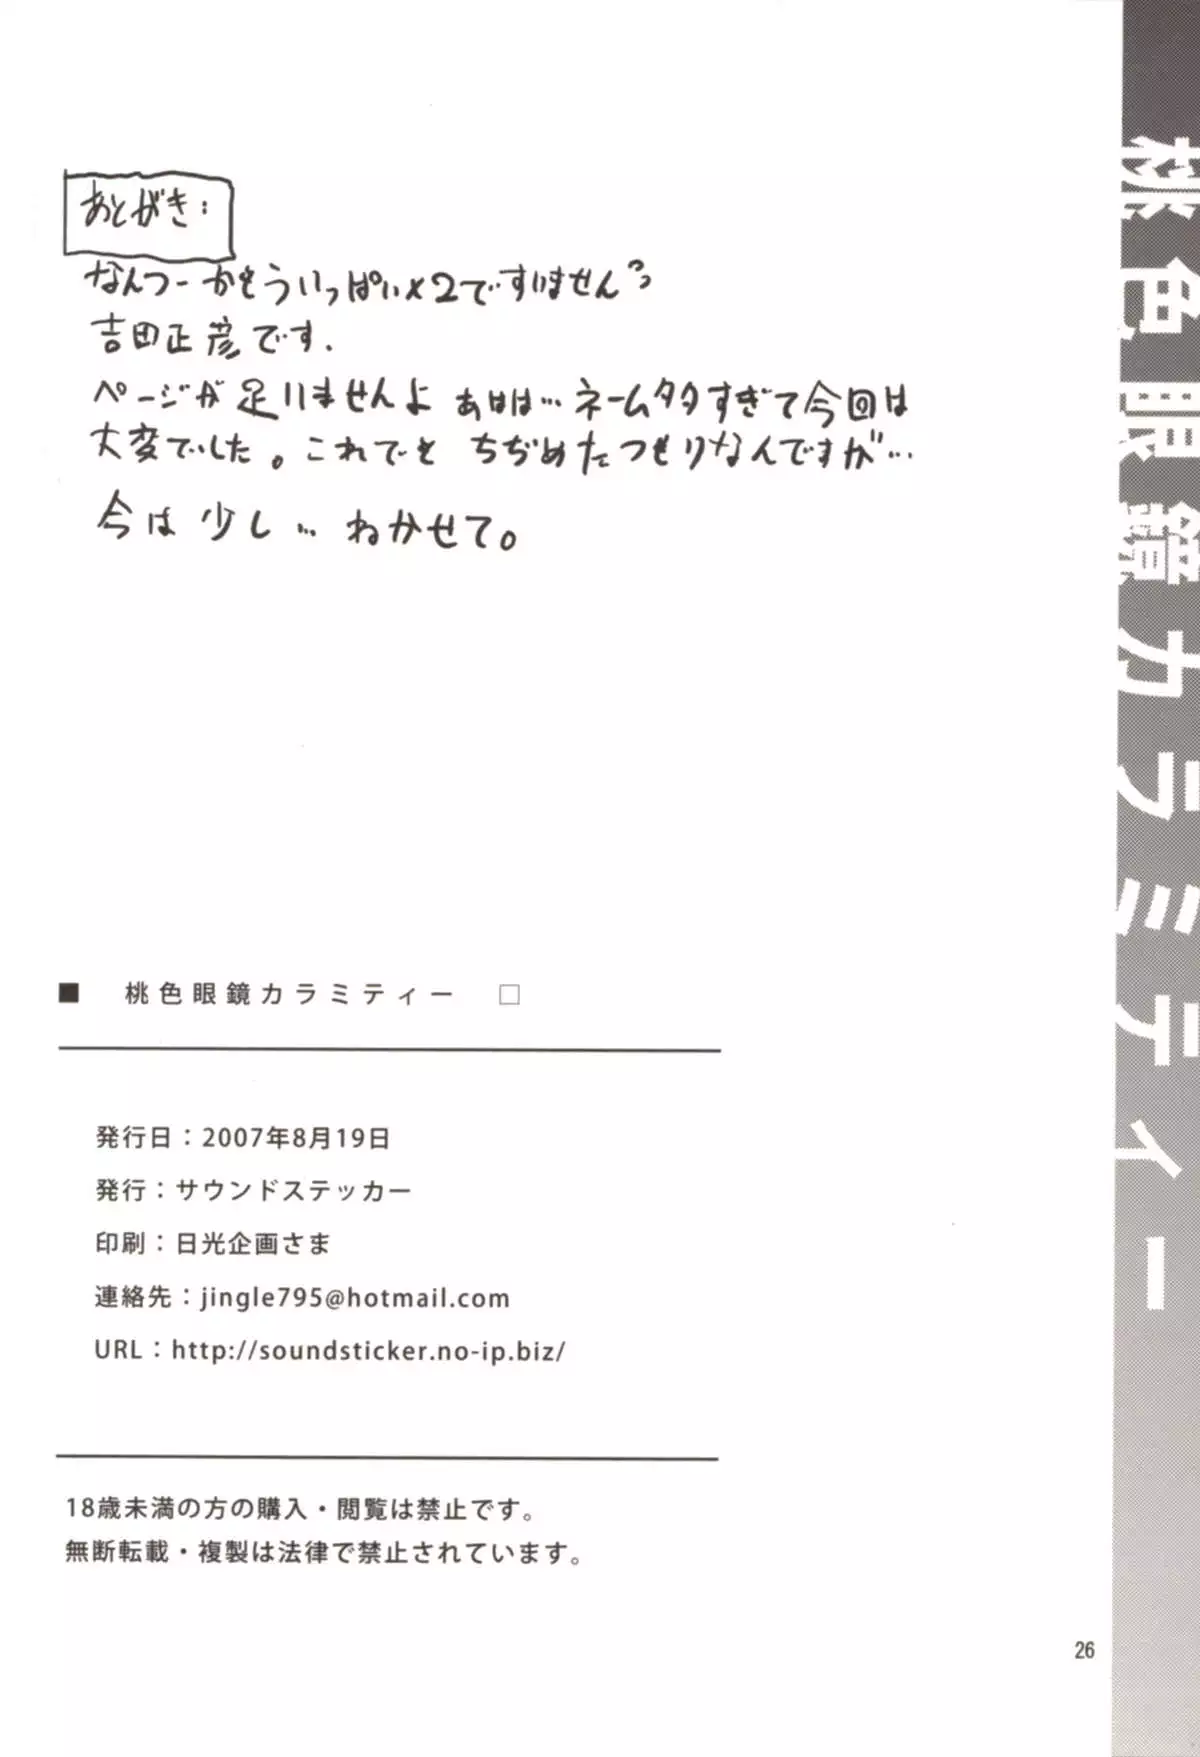 あとがき:
なんつーかもういっぱい×2ですいませんっ
吉田正彦です.
ページが足りませんよ あはは…ネームタタすぎて今回は
大変でした。これでも ちぢめたつもりなんですが…
今は少し… ねかせて。
■ 桃色眼鏡カラミティー □
発行日：2007年8月19日
発行：サウンドステッカー
印刷：日光企画さま
連絡先：jingle795@hotmail.com
URL：http://soundsticker.no-ip.biz/
18歳未満の方の購入・閲覧は禁止です。
無断転載・複製は法律で禁止されています。
26
桃色眼鏡カラミティー